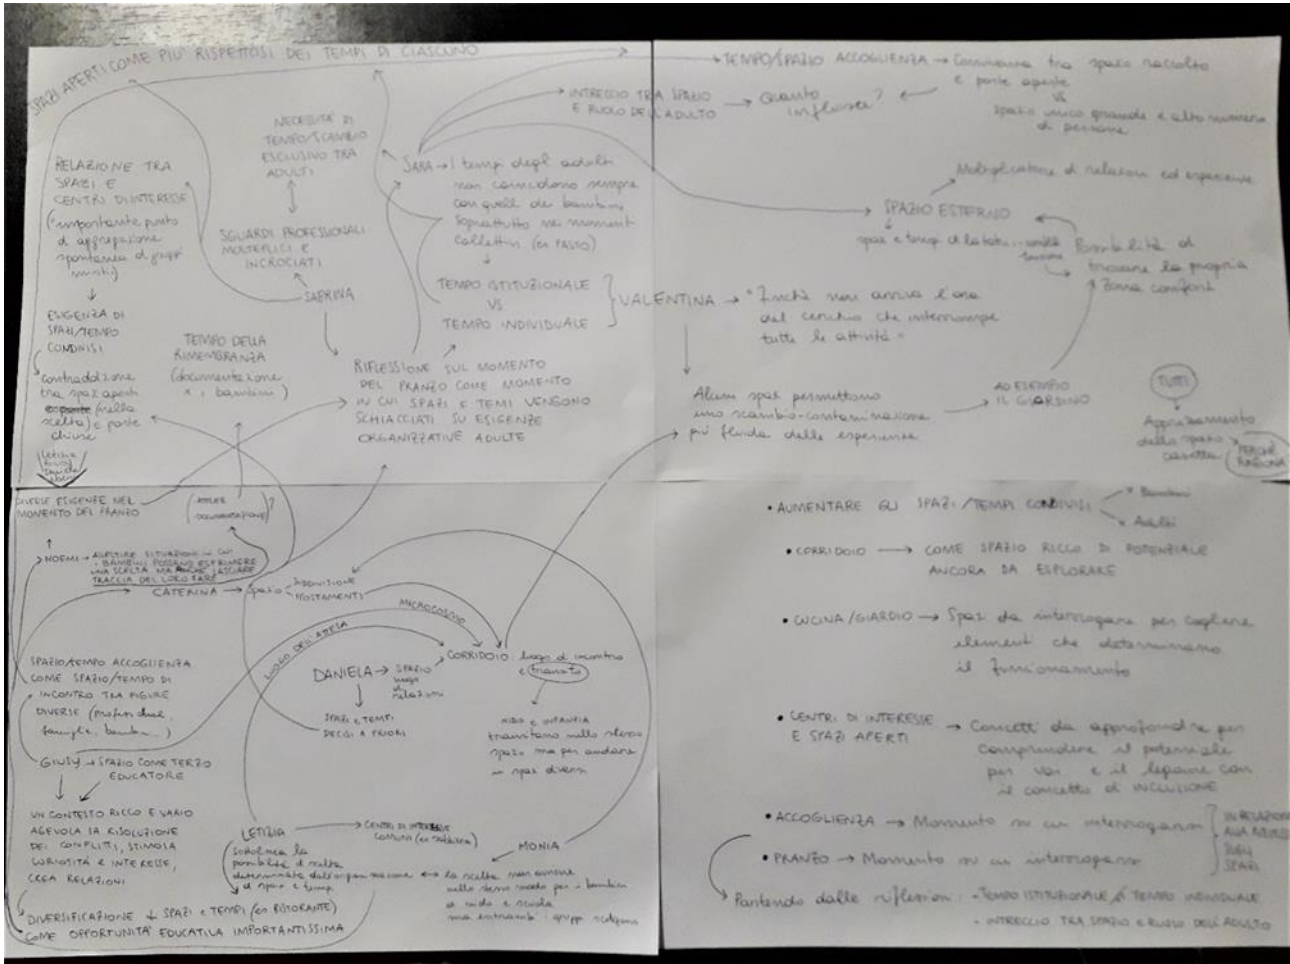 SPAZI APERTI COME PIU' RISPETTOSI DEI TEMPI DI CIASCUNO
RELAZIONE TRA
SPAZI E
CENTRI DI INTERESSE
(importante punto
di aggregazione
spontanea di gruppi
misti)
ESIGENZA DI
SPAZI/TEMPO
CONDIVISI
contraddizione
tra spazi aperti
(nella
scelta) e porte
chiuse
Letizia
Daniela
NECESSITÀ DI
TEMPO/SCAMBIO
ESCLUSIVO TRA
ADULTI
SGUARDI PROFESSIONALI
MOLTEPLICI E
INCROCIATI
SABRINA
TEMPO DELLA
RIMEMBRANZA
(documentazione
x i bambini)
SARA → I tempi degli adulti
non coincidono sempre
con quelli dei bambini
Soprattutto nei momenti
Collettivi (es PASTO)
TEMPO ISTITUZIONALE
VS
TEMPO INDIVIDUALE
RIFLESSIONE SUL MOMENTO
DEL PRANZO COME MOMENTO
IN CUI SPAZI E TEMI VENGONO
SCHIACCIATI SU ESIGENZE
ORGANIZZATIVE ADULTE
TEMPO/SPAZIO ACCOGLIENZA → Convivenza tra spazio raccolto
e porte aperte
VS
spazio unico grande e alto numero
di persone
INTRECCIO TRA SPAZIO
E RUOLO DELL'ADULTO → Quanto
influisce?
Moltiplicatore di relazioni ed esperienze
SPAZIO ESTERNO
spazi e tempi dilatati
Possibilità di
trovare la propria
zona comfort
VALENTINA → "Finchè non arriva l'ora
del cerchio che interrompe
tutte le attività"
Alcuni spazi permettono
uno scambio-contaminazione
più fluida delle esperienze
AD ESEMPIO
IL GIARDINO
TUTTI
Apprezzamento
dello spazio
casetta
PERCHÈ
FUNZIONA
DIVERSE ESIGENZE NEL
MOMENTO DEL PRANZO
(ATELIER
DOCUMENTAZIONE)?
NOEMI → ALLESTIRE SITUAZIONI IN CUI
I BAMBINI POSSANO ESPRIMERE
UNA SCELTA MA ANCHE LASCIARE
TRACCIA DEL LORO FARE
CATERINA → SPAZIO
SUDDIVISIONE
SPOSTAMENTI
MICROCOSMO
LUOGO DELL'ATTESA
SPAZIO/TEMPO ACCOGLIENZA
COME SPAZIO/TEMPO DI
INCONTRO TRA FIGURE
DIVERSE (professionali,
famiglie, bambini)
GIUSY → SPAZIO COME TERZO
EDUCATORE
UN CONTESTO RICCO E VARIO
AGEVOLA LA RISOLUZIONE
DEI CONFLITTI, STIMOLA
CURIOSITÀ E INTERESSE,
CREA RELAZIONI
DIVERSIFICAZIONE SPAZI E TEMPI (es RISTORANTE)
COME OPPORTUNITA' EDUCATIVA IMPORTANTISSIMA
DANIELA → SPAZIO
luogo
di
relazioni
SPAZI E TEMPI
DECISI A PRIORI
CORRIDOIO: luogo di incontro
e transito
NIDO E INFANZIA
transitano nello stesso
spazio ma per andare
in spazi diversi
LETIZIA → CENTRI DI INTERESSE
COMUNI
Sottolinea la
possibilità di scelta
determinata dall'organizzazione
di spazi e tempi
MONIA
la scelta non avviene
nello stesso modo per i bambini
di nido e scuola
ma entrambi i gruppi scelgono
• AUMENTARE GLI SPAZI/TEMPI CONDIVISI
x Bambini
x Adulti
• CORRIDOIO → COME SPAZIO RICCO DI POTENZIALE
ANCORA DA ESPLORARE
• CUCINA/GIARDIO → Spazi da interrogare per cogliere
elementi che determinano
il funzionamento
• CENTRI DI INTERESSE
E SPAZI APERTI → Concetti da approfondire per
comprendere il potenziale
per voi e il legame con
il concetto di INCLUSIONE
• ACCOGLIENZA → Momento su cui interrogarsi
• PRANZO → Momento su cui interrogarsi
IN RELAZIONE
SUGLI
SPAZI
Partendo dalle riflessioni: - TEMPO ISTITUZIONALE TEMPO INDIVIDUALE
- INTRECCIO TRA SPAZIO E RUOLO DELL'ADULTO